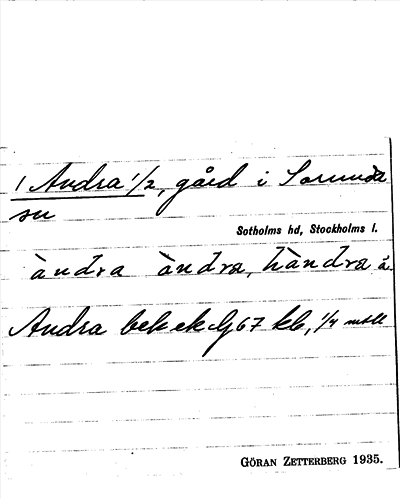 1 Andra 1/2, gård i Sorunda
sn
Sotholms hd, Stockholms l.
àndra àndra, hàndra
Andra bek ek 67 kb, 1/4 mtl
GÖRAN ZETTERBERG 1935.